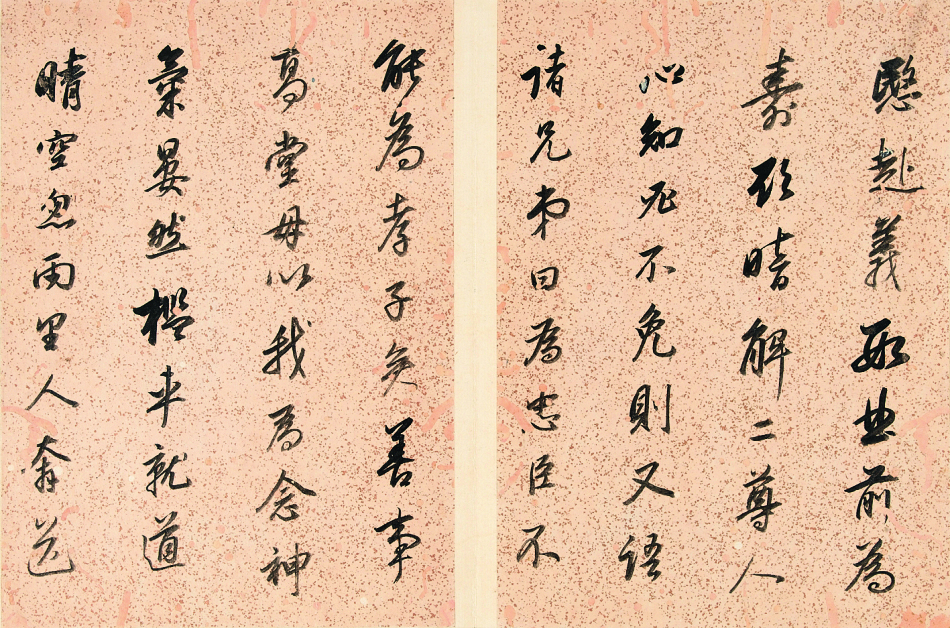 愍赴義毅出前為
壽頎暗解二尊人
心知死不免則又語
諸兄弟曰為忠臣不
能為孝子矣善事
高堂毋以我為念神
氣晏然檻車就道
晴空忽雨里人奔送